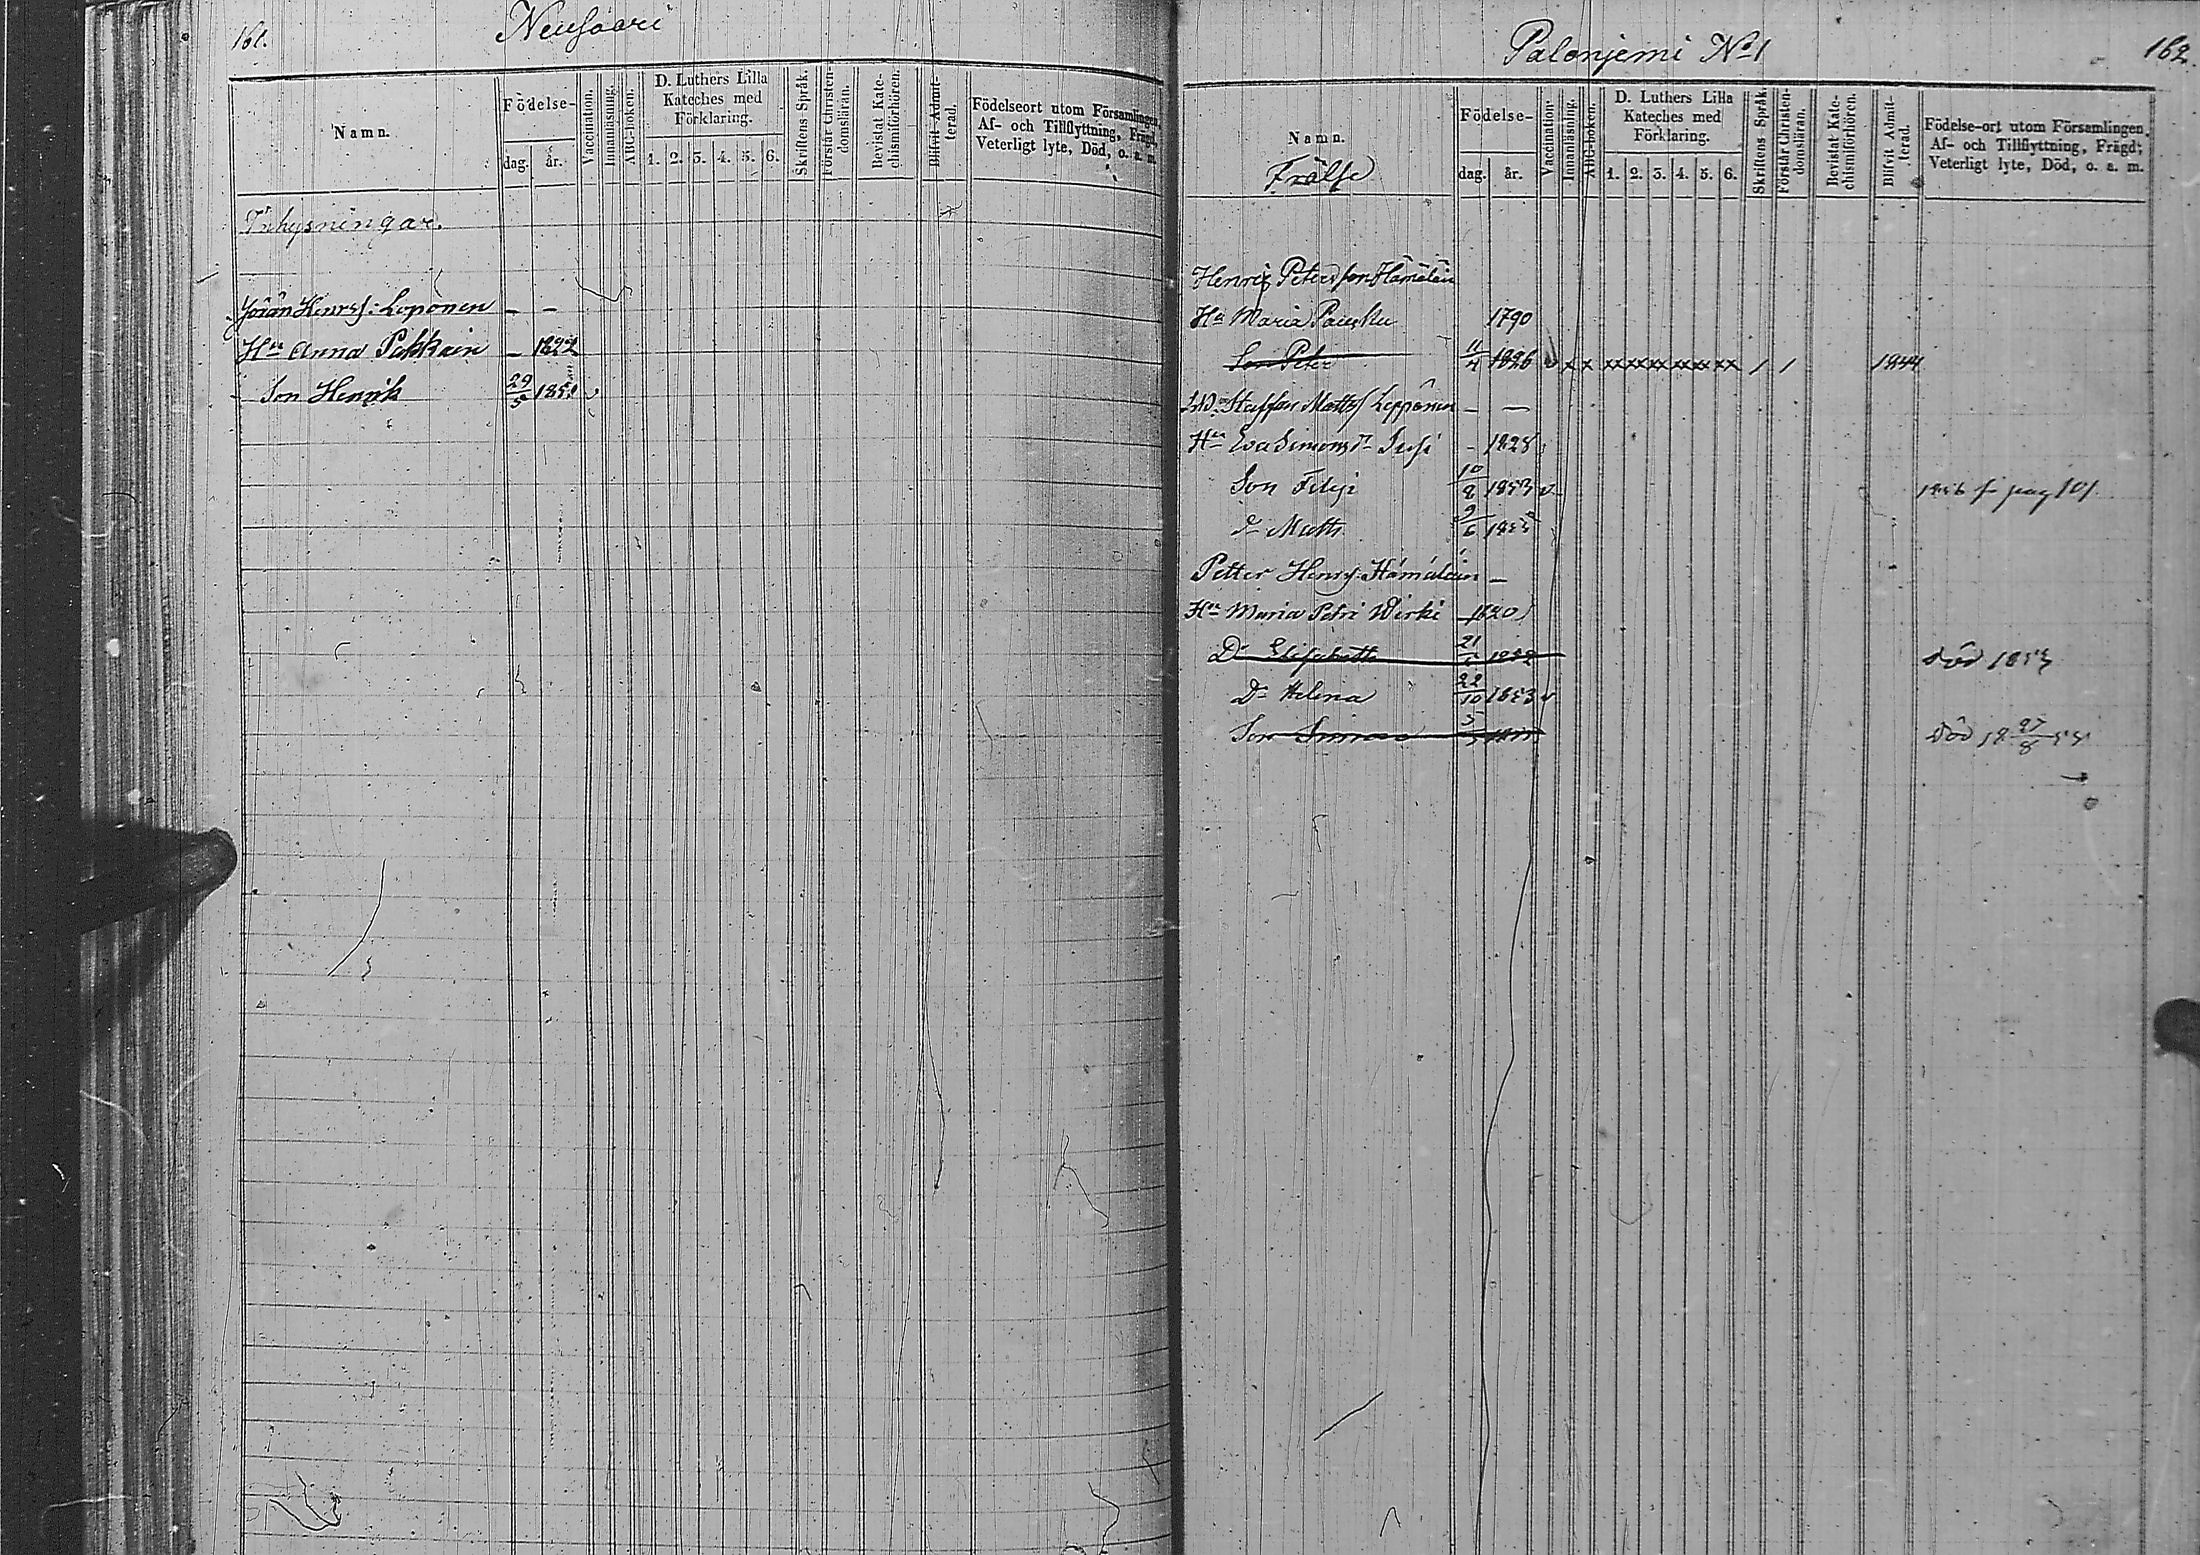 161.
Neusaari
Namn.
Födelse-
dag. år.
Vaccination.
Innanläsning.
ABC-boken.
D. Luthers Lilla
Kateches med
Förklaring.
1. 2. 3. 4. 5. 6.
Skriftens Språk.
Förstår Christen-
domsläran.
Bevistat Kate-
chismiförhören.
Blifvit Admit-
terad.
Födelseort utom Församlingen,
Af- och Tillflyttning, Frägd,
Veterligt lyte, Död, o. a. m.
Inhysningar.
Jöran Henrs: Loponen – –
Hu Anna Pekkain – 1822
Son Henrik 29/5 1851 v
Palonjemi No 1
162.
Namn.
Frälse
Födelse-
dag. år.
Vaccination.
Innanläsning.
ABC-boken.
D. Luthers Lilla
Kateches med
Förklaring.
1. 2. 3. 4. 5. 6.
Skriftens Språk.
Förstår Christen-
domsläran.
Bevistat Kate-
chismiförhören.
Blifvit Admit-
terad.
Födelse-ort utom Församlingen,
Af- och Tillflyttning, Frägd;
Veterligt lyte, Död, o. a. m.
Henric Petersson Hämäläin
Hu Maria Pausku 1790
Son Peter 11/4 1826 v x x xx xx xx xx xx xx / / 1844
Staffan Matts Lepponen – –
Hu Eva Simonsdr Susi – 1828
Son Filip 10/8 1853 v 1856 f pag 101
Do Matts 9/6 1855
Petter Henrs: Hämäläin –
Hu Maria Petri Wirki – 1820
Dr Elisabeth 21/5 1852 död 1853
Dr Helena 22/10 1853 v
Son Simon 5 Död 18 27/8 55